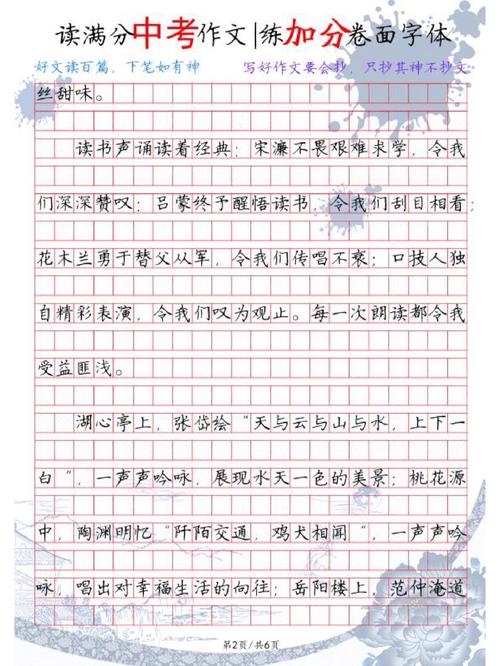 读满分中考作文|练加分卷面字体
好文读百篇，下笔如有神 写好作文要会抄，只抄其神不抄文
丝甜味。
读书声诵读着经典：宋濂不畏艰难求学，令我
们深深赞叹；吕蒙终予醒悟读书，令我们刮目相看；
花木兰勇于替父从军，令我们传唱不衰；口技人独
自精彩表演，令我们叹为观止。每一次朗读都令我
受益匪浅。
湖心亭上，张岱绘“天与云与山与水，上下一
白”，一声声吟咏，展现水天一色的美景；桃花源
中，陶渊明忆“阡陌交通，鸡犬相闻”，一声声吟
咏，唱出对幸福生活的向往；岳阳楼上，范仲淹道
第2页/共6页